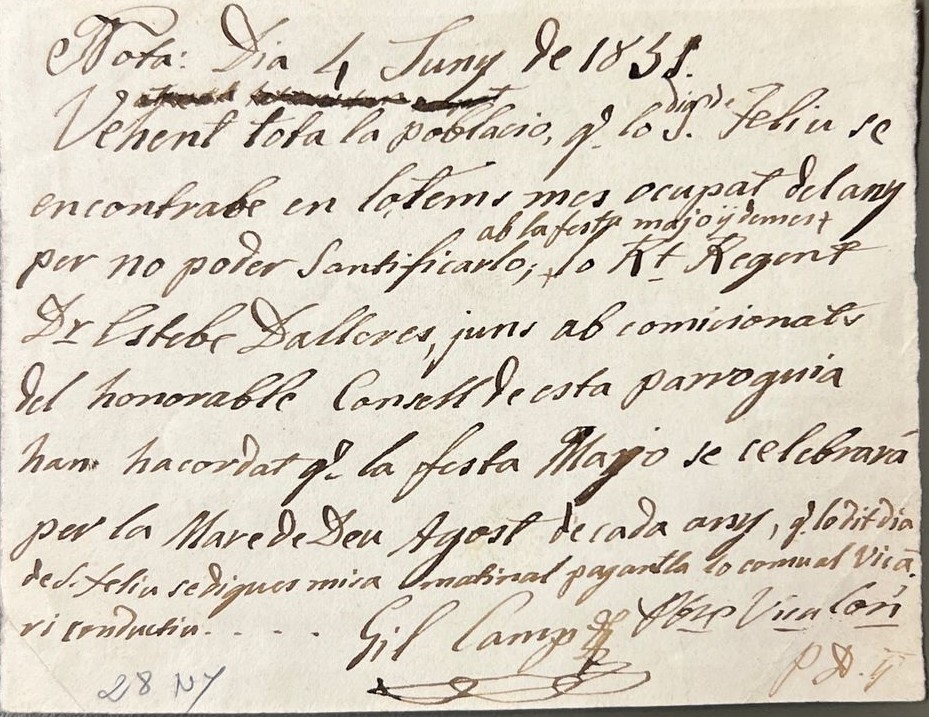 Nota: Dia 4 Juny de 1851.
Vehent tota la poblacio, q.e lo dia de S. Feliu se
encontrabe en lo tems mes ocupat del any
ab la festa majo y demes +
per no poder Santificarlo, + lo Rt. Regent
Dr Estebe Dalleres, juns ab comicionats
del honorable Consell de esta parroquia
han hacordat q.e la festa Majo se celebrará
per la Mare de Deu Agost de cada any, q.e lo dit dia
de S. Feliu se digues misa matinal pagantla lo comu al Vica-
ri conductiu. . . . .
Gil Camp Pbre Vica Con
28 NY